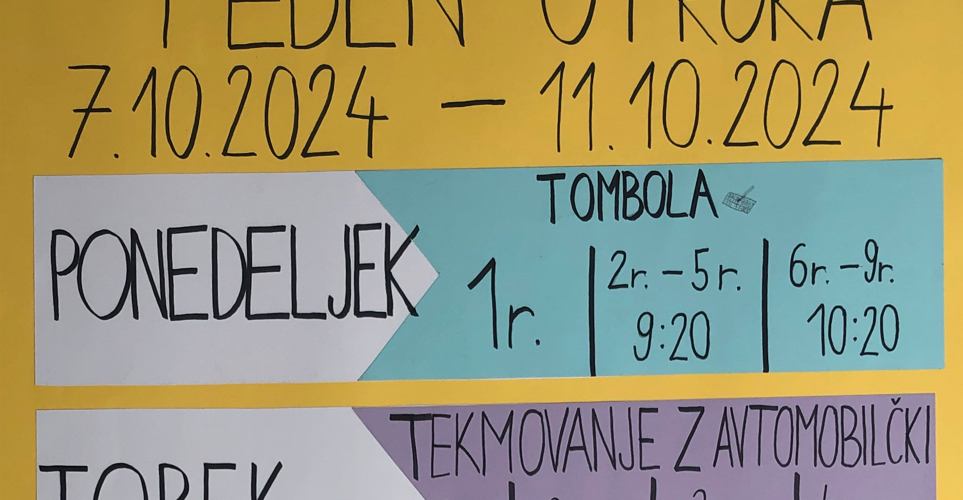 TEDEN OTROKA
7.10.2024 – 11.10.2024
PONEDELJEK
TOMBOLA
1r.
2r. – 5r.
9:20
6r. – 9r.
10:20
TOREK
TEKMOVANJE Z AVTOMOBILČKI